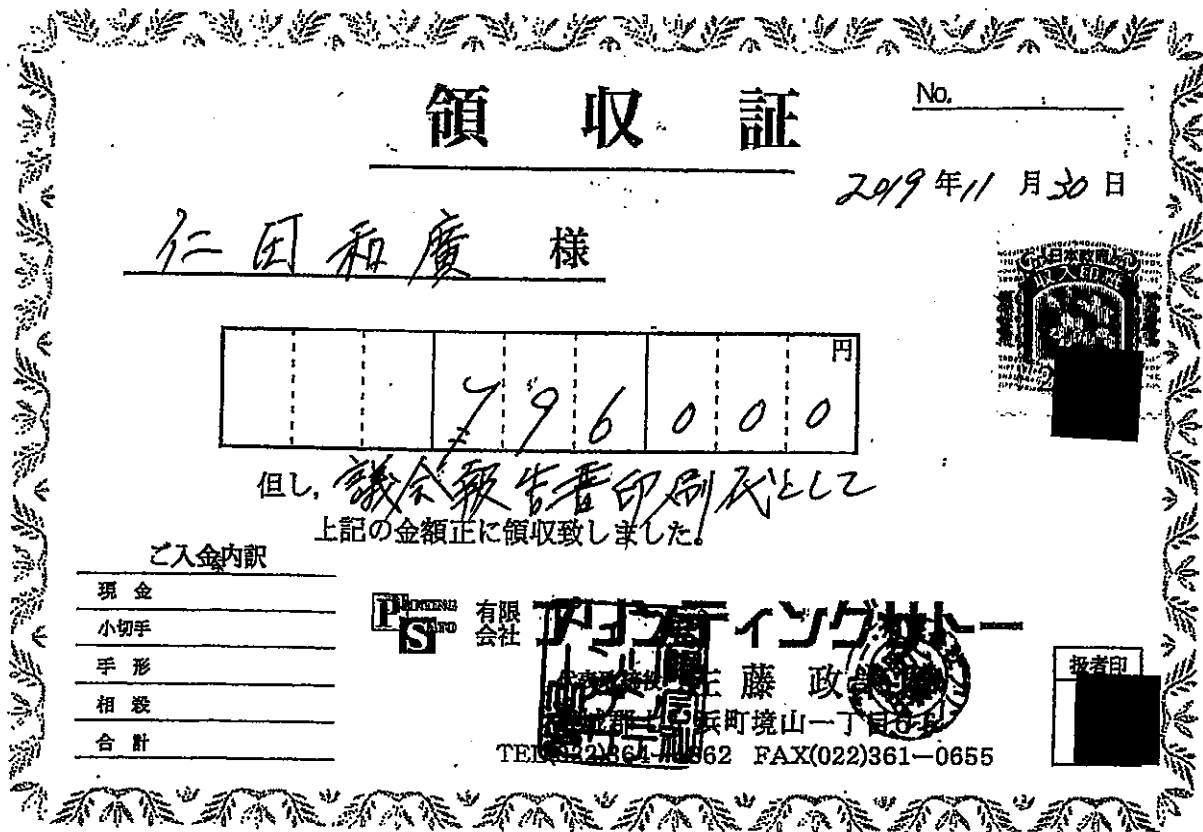 領収証
No.
2019年11月30日
仁田和廣 様
円
796000
但し、議会報告書印刷代として
上記の金額正に領収致しました。
ご入金内訳
現金
小切手
手形
相殺
合計
PRINTING SATO
有限会社 プリンティングサトー
佐藤 政
浜町境山一丁目
TEL(022)364- 862 FAX(022)361-0655
扱者印
日本政府
収入印紙